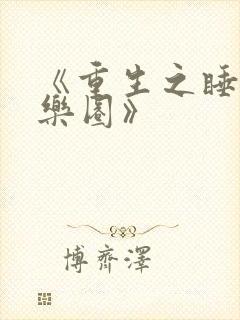 《重生之睡
樂園》
博齊澤